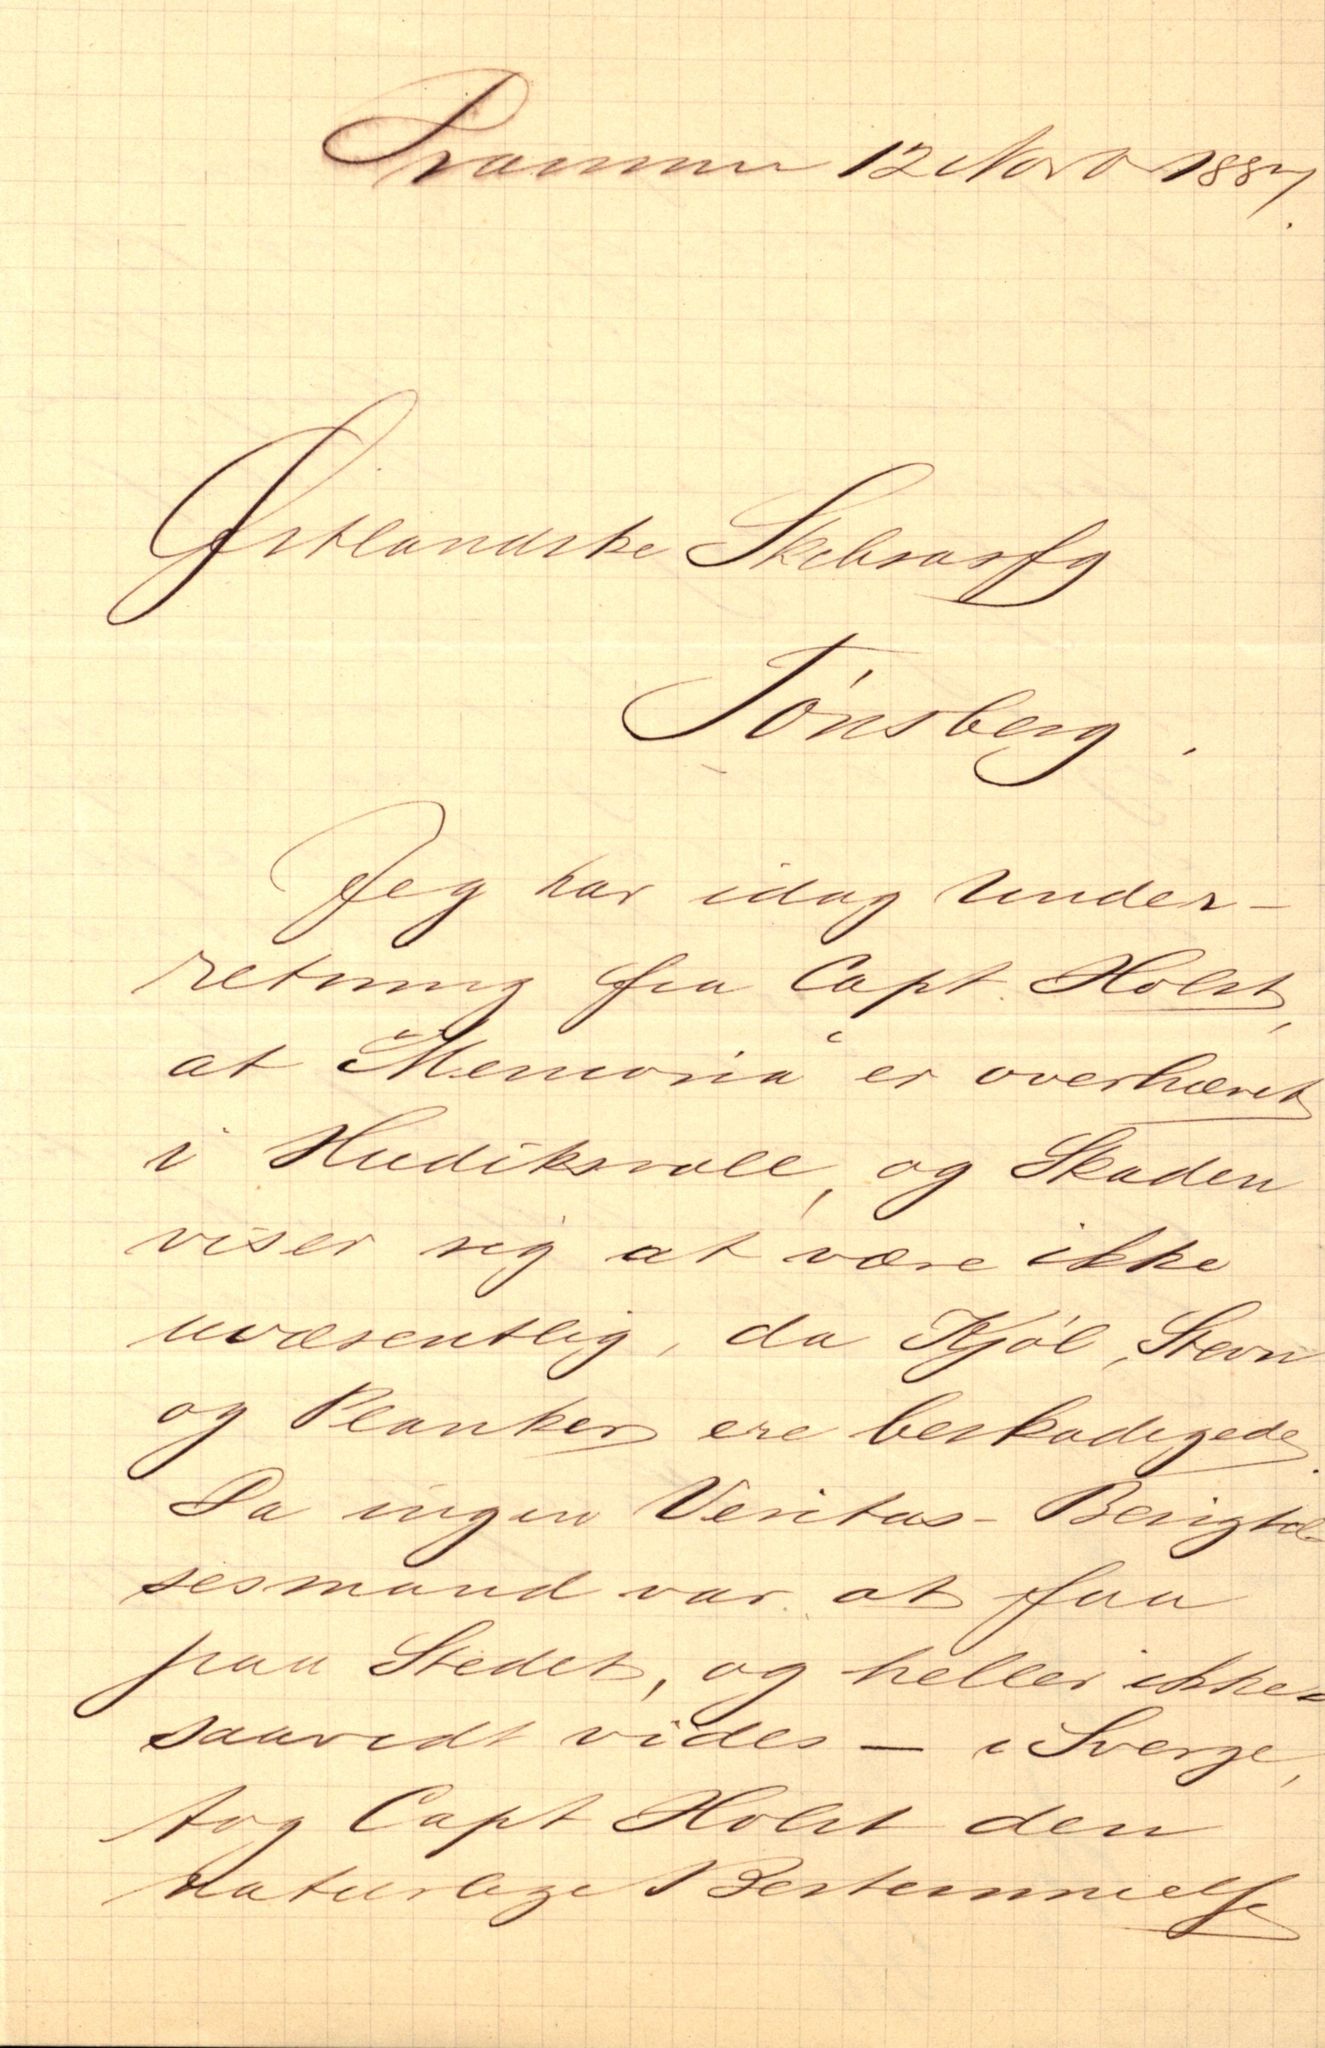 Drammen 12 Novbr 1887.
Østlandske Skibsassfg
Tönsberg.
Jeg har idag Under-
retning fra Capt. Holst,
at "Memoria" er overhalet
i Hudiksvall, og Skaden
viser sig at være ikke
uvæsentlig, da Kjöl, Stevn
og Planker ere beskadigede.
Da ingen Veritas-Besigtel-
sesmand var at faa
paa Stedet, og heller ikke -
saavidt vides — i Sverge,
tog Capt Holst den
naturlige Bestemmelse